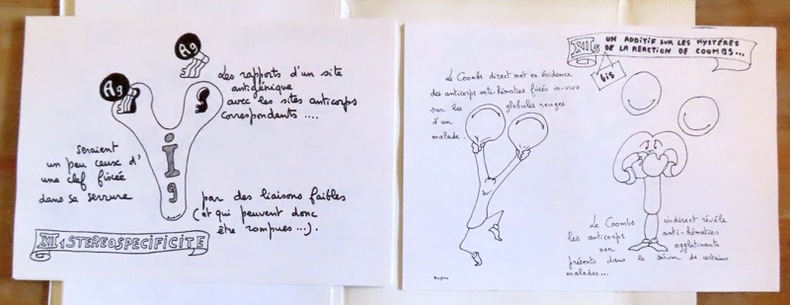 Ag
Ag
Ig
Les rapports d'un site
antigénique
avec les sites anticorps
correspondants ....
seraient
un peu ceux d'
une clef fixée
dans sa serrure
par des liaisons faibles
(et qui peuvent donc
être rompues ...).
STEREOSPECIFICITE
UN ADDITIF SUR LES MYSTÉRES
DE LA REACTION DE COOMBS...
bis
Le Coombs direct met en évidence
des anticorps anti-hématies fixés in-vivo
sur les globules rouges
d'un
malade.
Le Coombs indirect révèle
les anticorps anti-hématies
non agglutinants
présents dans le sérum de certains
malades...